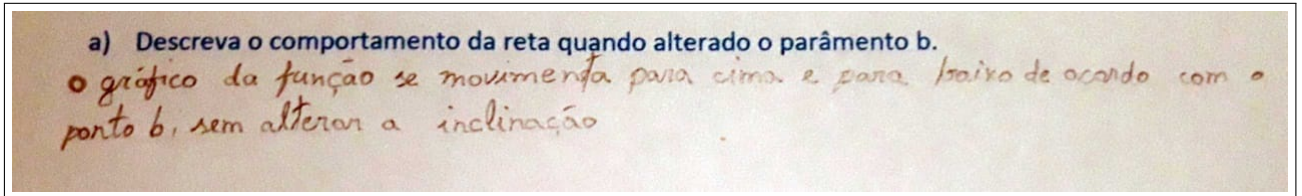 a) Descreva o comportamento da reta quando alterado o parâmento b.
o gráfico da função se movimenta para cima e para baixo de acordo com o
ponto b, sem alterar a inclinação